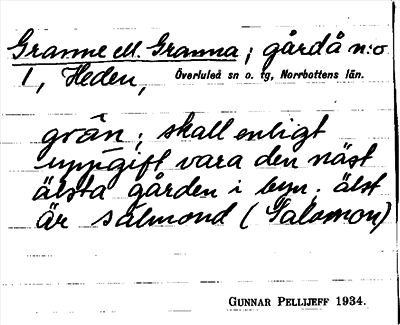 Granne ell. Granna; gårdå n:o
1, Heden, Överluleå sn o. tg, Norrbottens län.
grån; skall enligt
uppgift vara den näst
älsta gården i byn; älst
är sálmond (Salomon)
GUNNAR PELLIJEFF 1934.